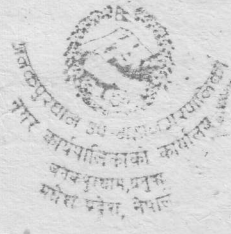 जनकपुरधाम उपमहानगरपालिका
नगर कार्यपालिकाको कार्यालय
जनकपुरधाम, धनुषा
मधेश प्रदेश, नेपाल